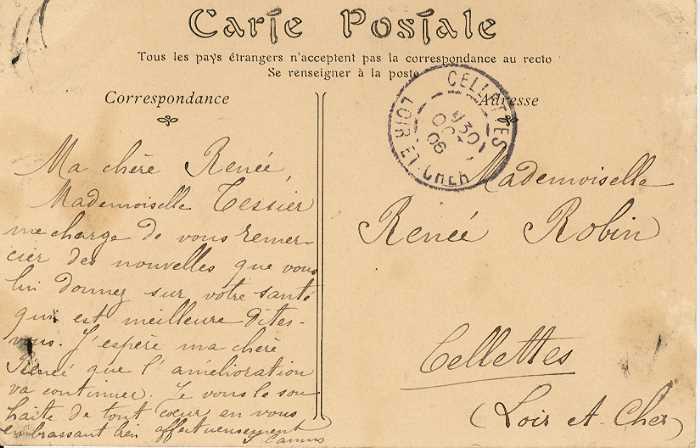 Carte Postale
Tous les pays étrangers n'acceptent pas la correspondance au recto
Se renseigner à la poste
Correspondance
Ma chère Renée,
Mademoiselle Tessier
me charge de vous remer-
cier des nouvelles que vous
lui donnez sur votre santé
qui est meilleure dites-
vous. J'espère ma chère
Renée que l'amélioration
va continuer. Je vous le sou-
haite de tout cœur en vous
embrassant bien affectueusement
Adresse
CELLETTES
30
OCT
06
LOIR ET CHER
Mademoiselle
Renée Robin
Cellettes
(Loir et Cher)